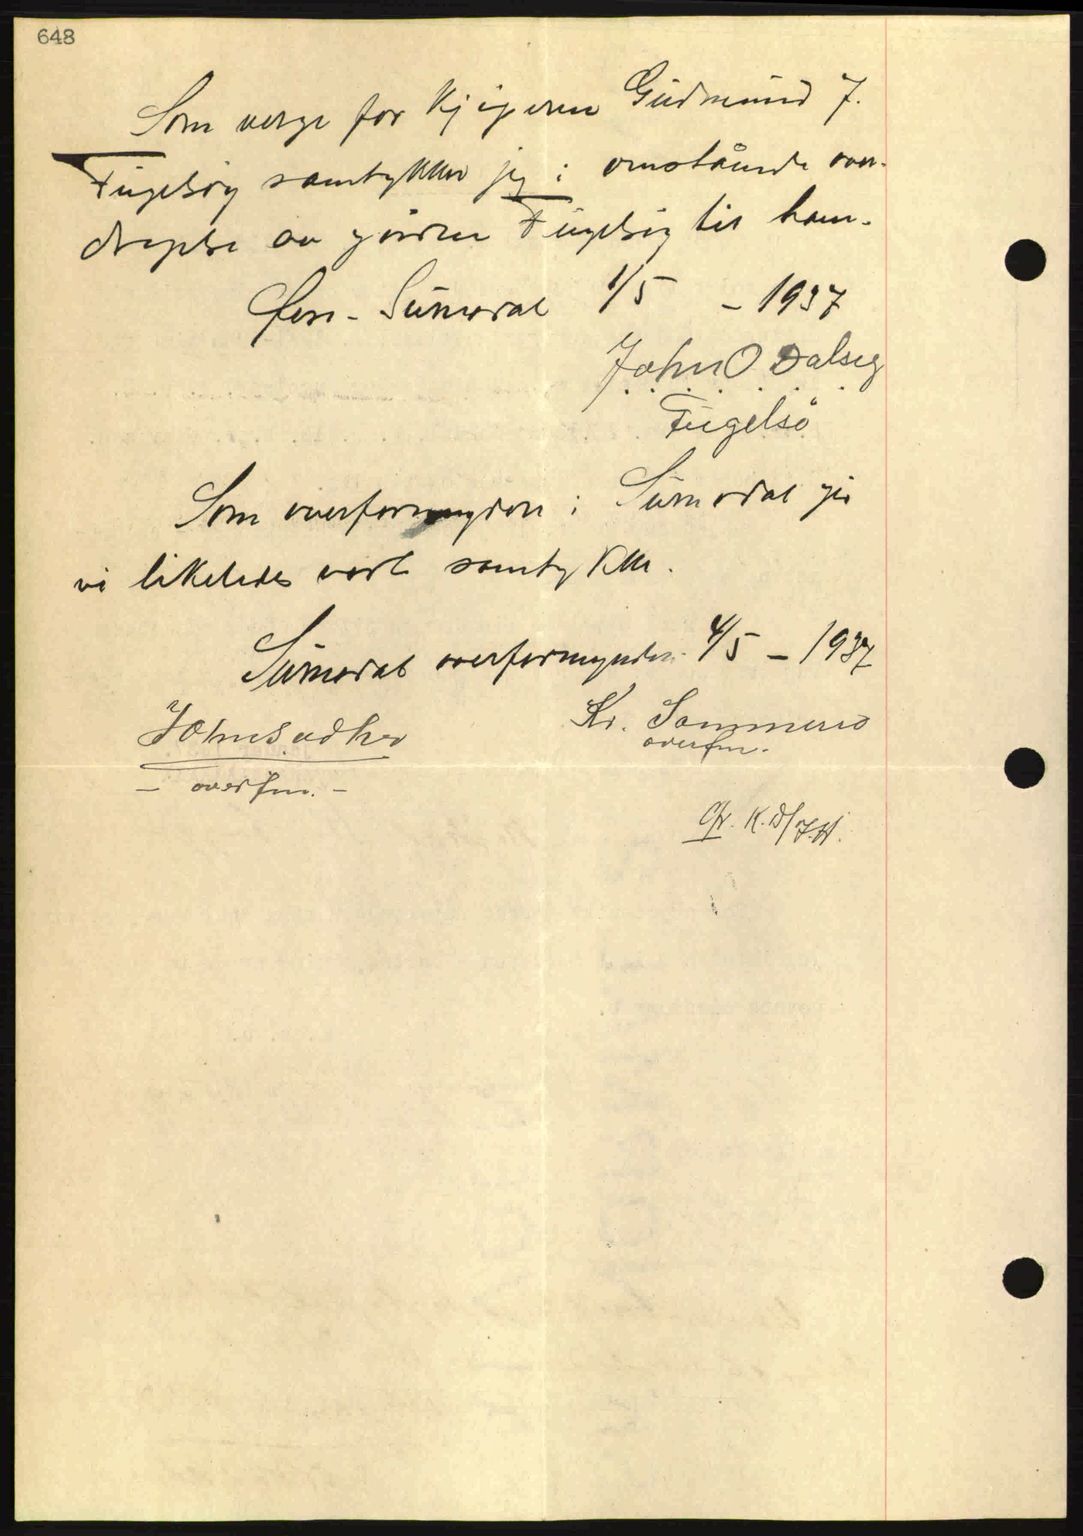 648
Som verge for kjøperen Gudmund J.
Fugelsøy samtykker jeg i omstående over-
dragelse av gården Fugelsøy til ham.
Øvre-Surnadal 1/5 - 1937
John O Dalseg
Fugelsø
Som overformyndere i Surnadal gir
vi likeledes vort samtykke.
Surnadal overformynderi 4/5 - 1937
John Sæther Kr. Sommerro
- overfm. - overfm.
K.D/J.H.